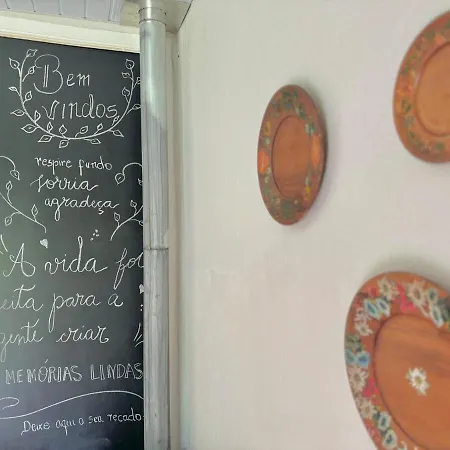 Bem
vindos
respire fundo
sorria
agradeça
A vida foi
feita para a
gente criar
MEMÓRIAS LINDAS
Deixe aqui o seu recado